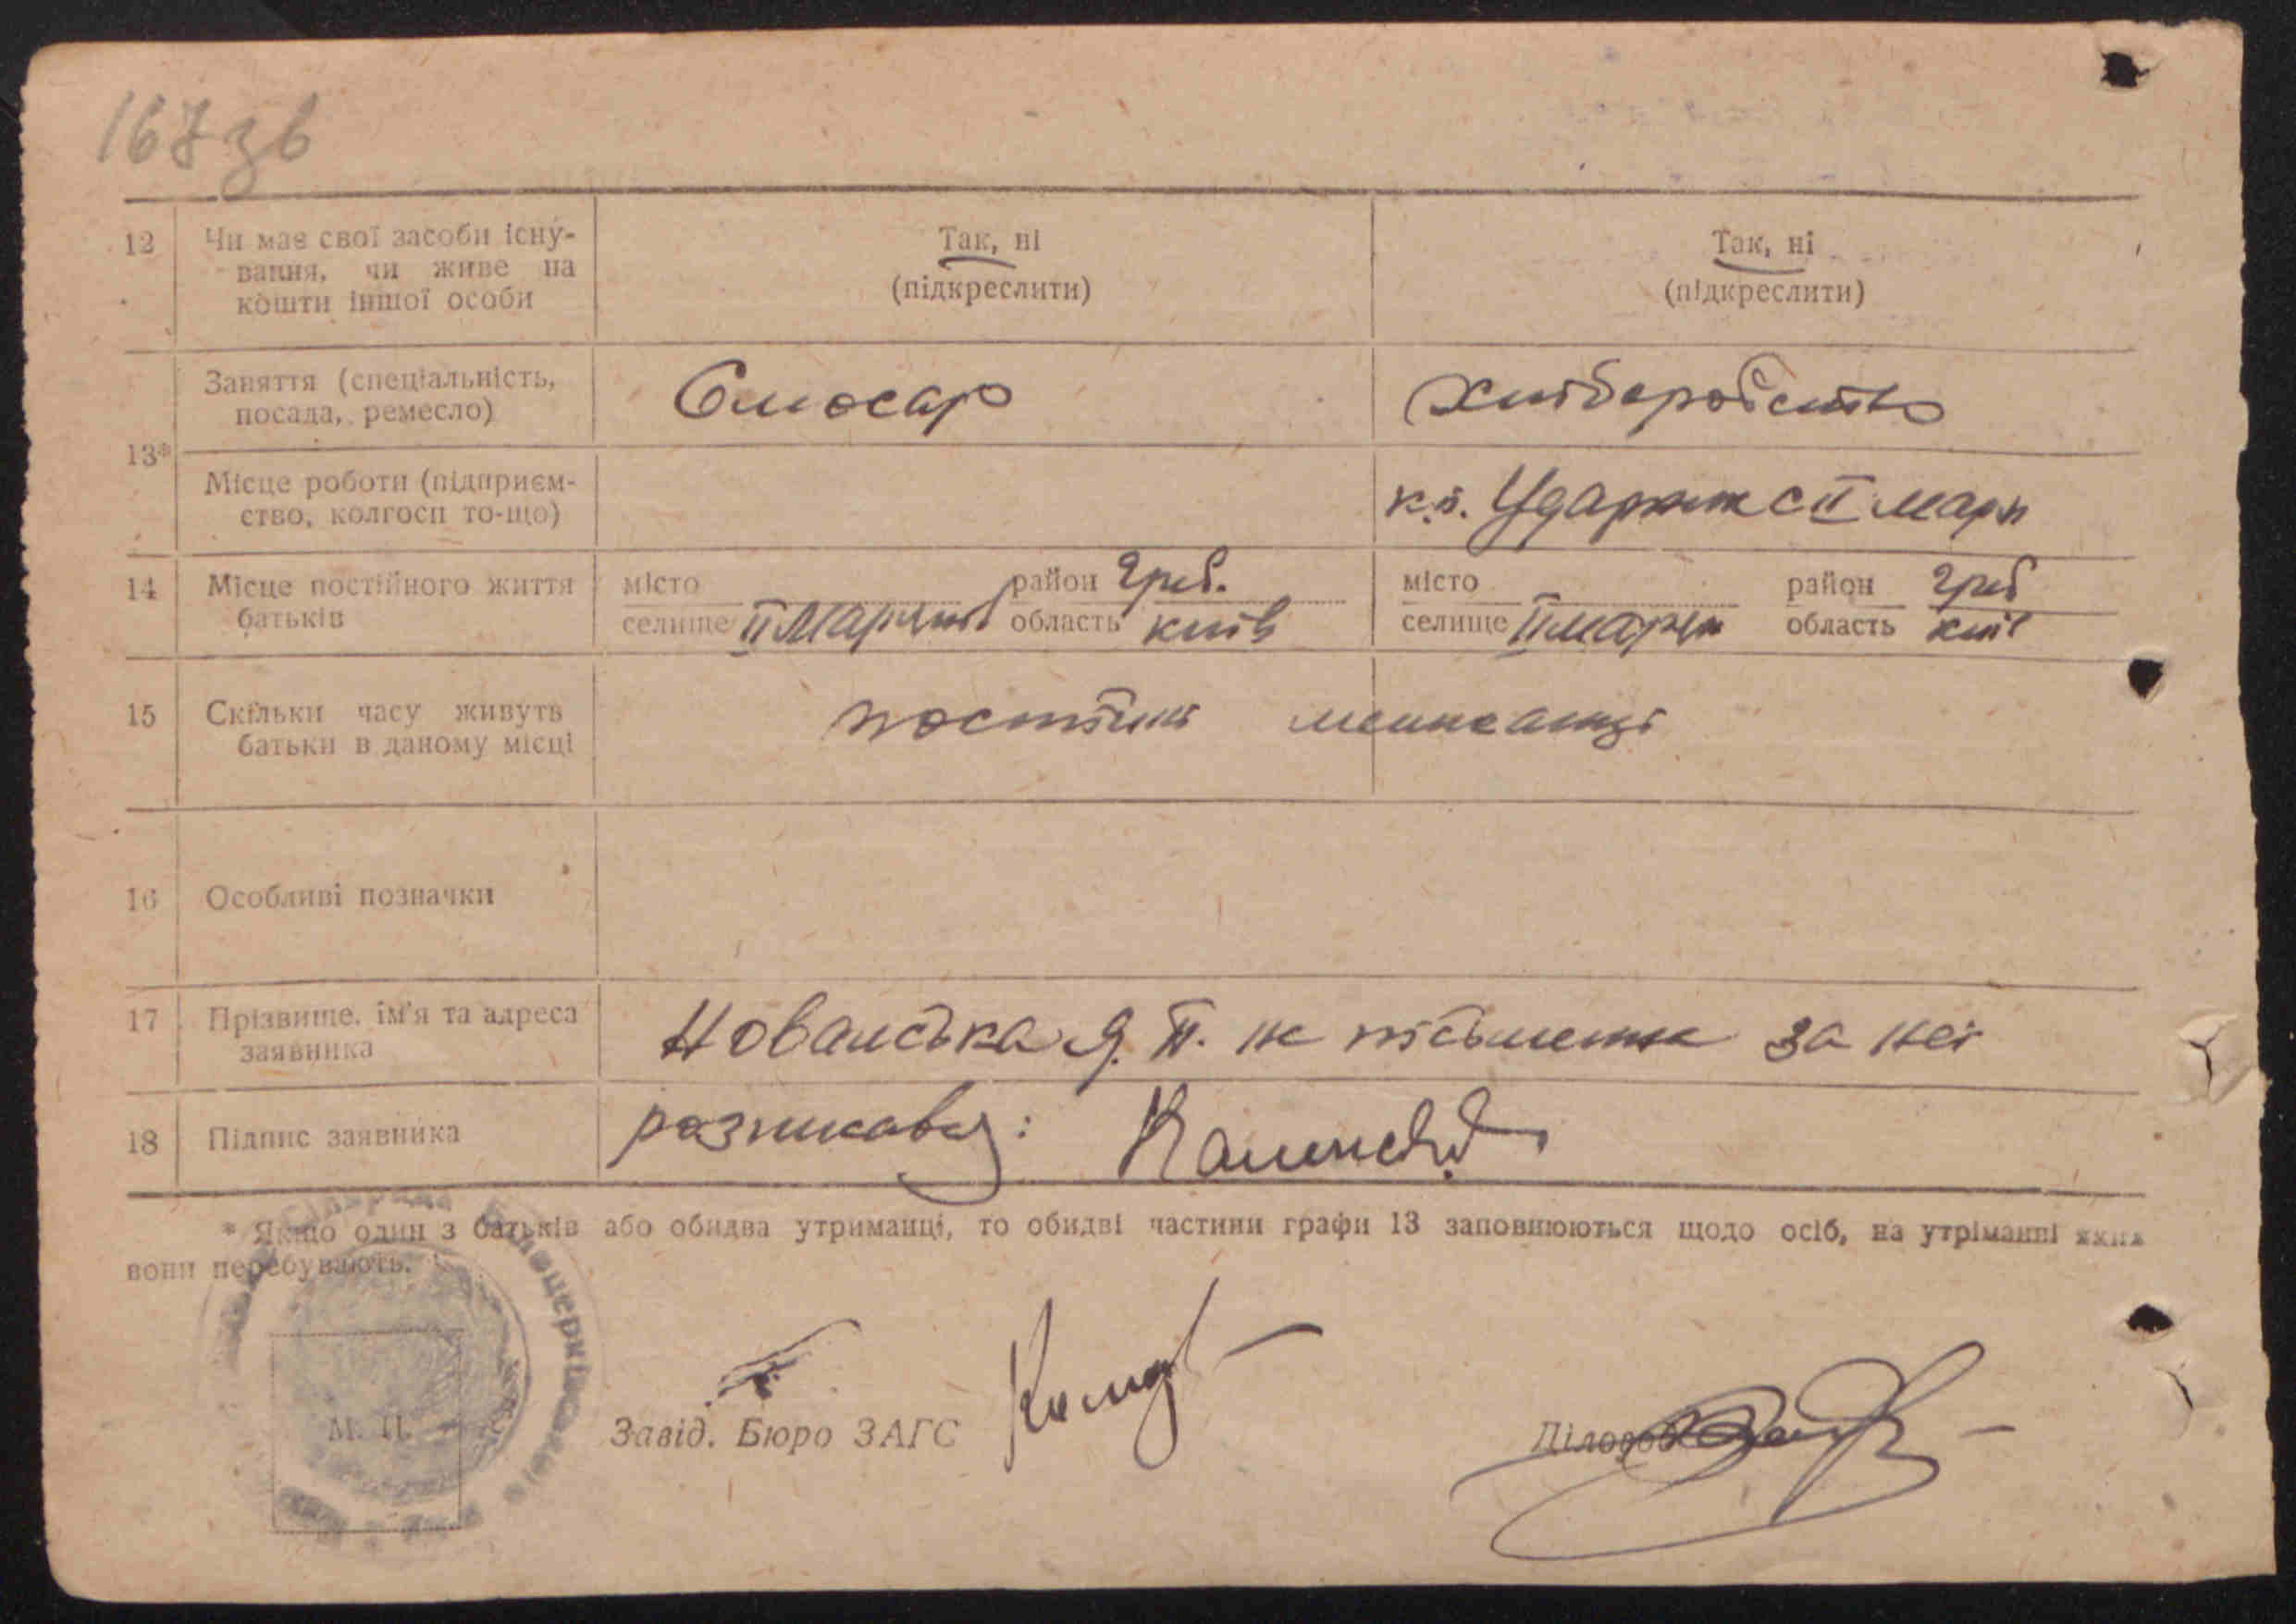 167зв
12 Чи має свої засоби існу-
вання, чи живе на
кошти іншої особи
Так, ні
(підкреслити)
Так, ні
(підкреслити)
13*
Заняття (спеціальність,
посада, ремесло)
Слюсар
Хліборобство
Місце роботи (підприєм-
ство, колгосп то-що)
к.г. Ударник с ІІ Мари
14 Місце постійного життя
батьків
місто район Греб.
селище ІІ область київ
місто район Греб
селище ІІ область київ
15 Скільки часу живуть
батьки в даному місці
постійні мешканці
16 Особливі позначки
17 Прізвище, ім'я та адреса
заявника
Я. П. не письменна за неї
18 Підпис заявника
розписався:
* Якщо один з батьків або обидва утриманці, то обидві частини графи 13 заповнюються щодо осіб, на утріманні яких
вони перебувають.
М. П.
Завід. Бюро ЗАГС
Діловод